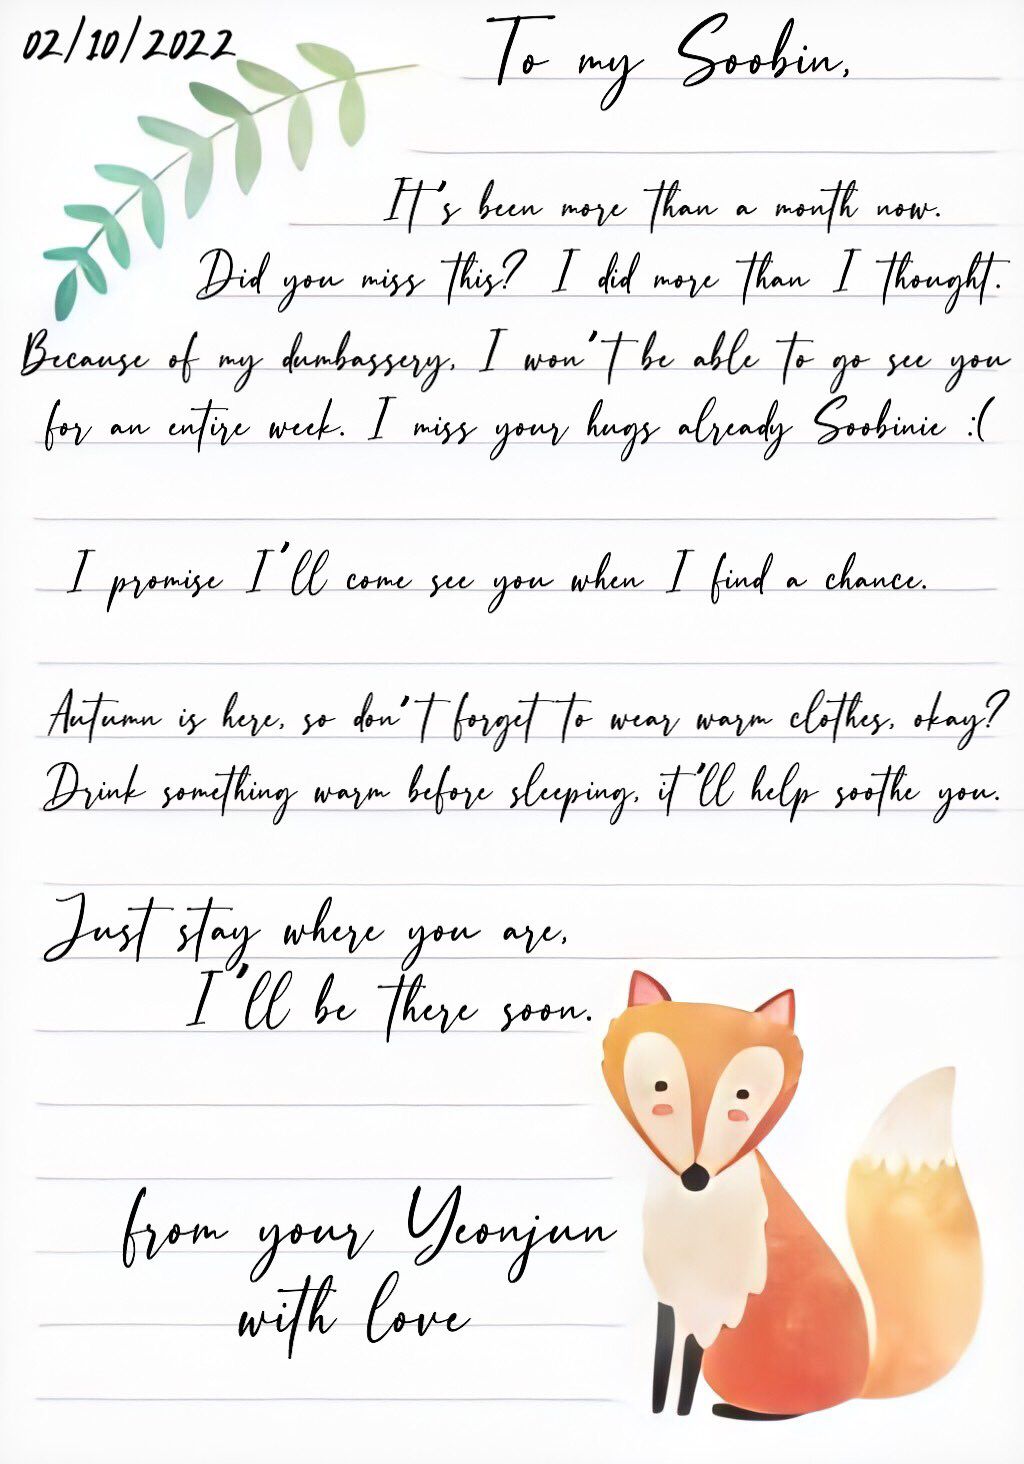 02/10/2022
To my Soobin,
It's been more than a month now.
Did you miss this? I did more than I thought.
Because of my dumbassery, I won't be able to go see you
for an entire week. I miss your hugs already Soobinie :(
I promise I'll come see you when I find a chance.
Autumn is here, so don't forget to wear warm clothes, okay?
Drink something warm before sleeping, it'll help soothe you.
Just stay where you are,
I'll be there soon.
from your Yeonjun
with love